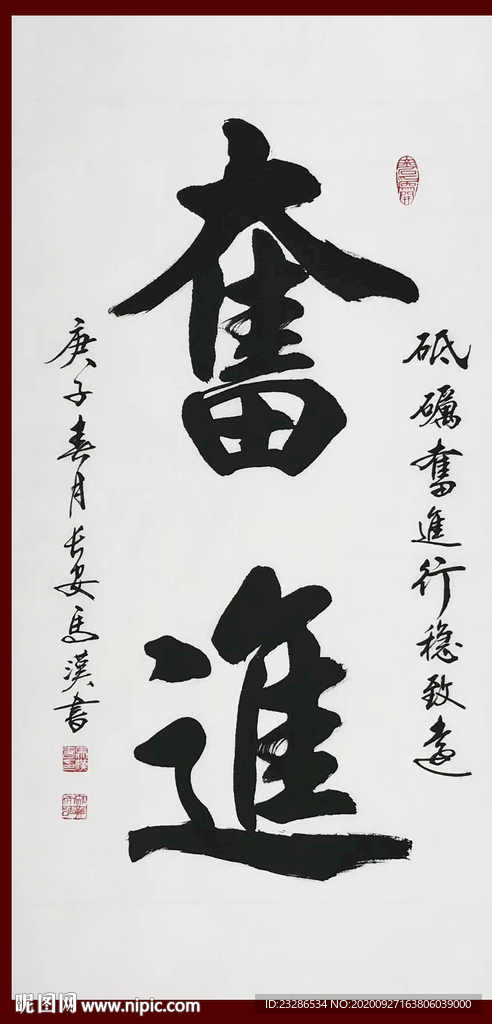 砥礪奮進行穩致遠
奮進
庚子春月长安馬漢書
昵图网 www.nipic.com
ID:23286534 NO:20200927163806039000